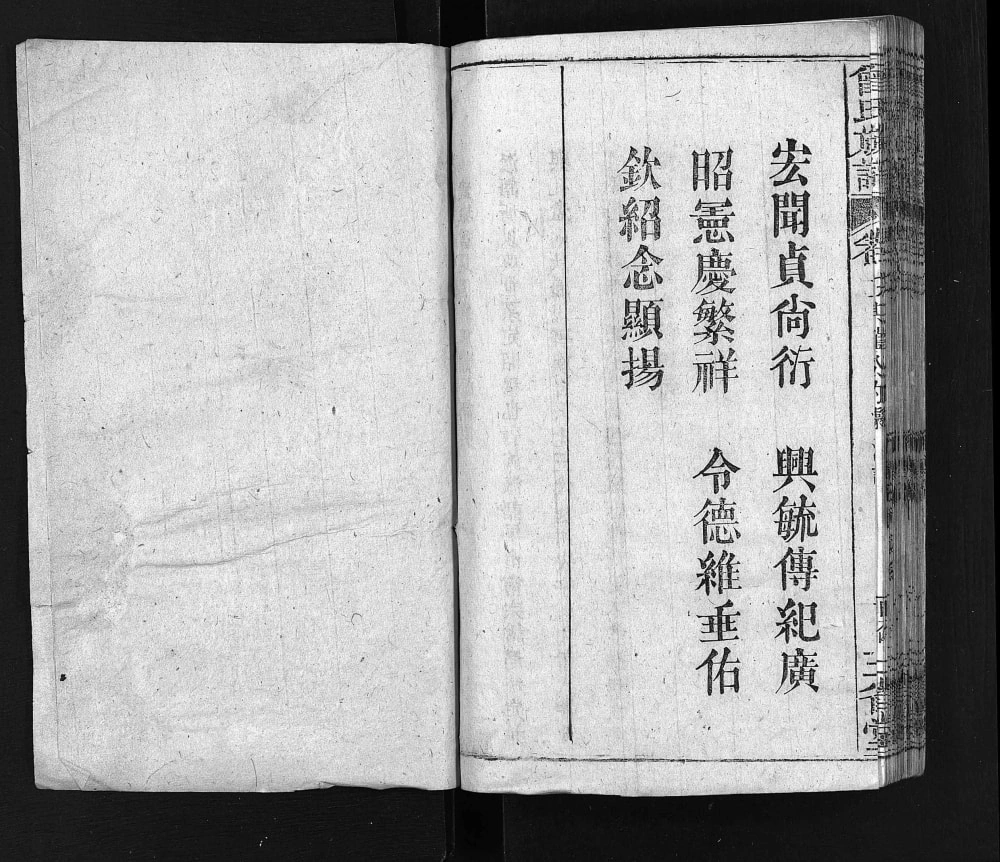 宏聞貞尙衍　興毓傳紀廣
昭憲慶繁祥　令德維垂佑
欽紹念顯揚
曾氏族譜
三省堂